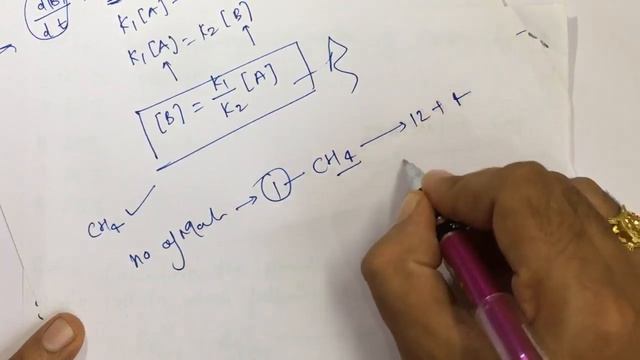 d[B]
dt
K₁[A] =
K₁[A] = K₂[B]
[B] = K₁/K₂ [A]
CH₄ ✓
no of mole → ① CH₄ → 12 + 4